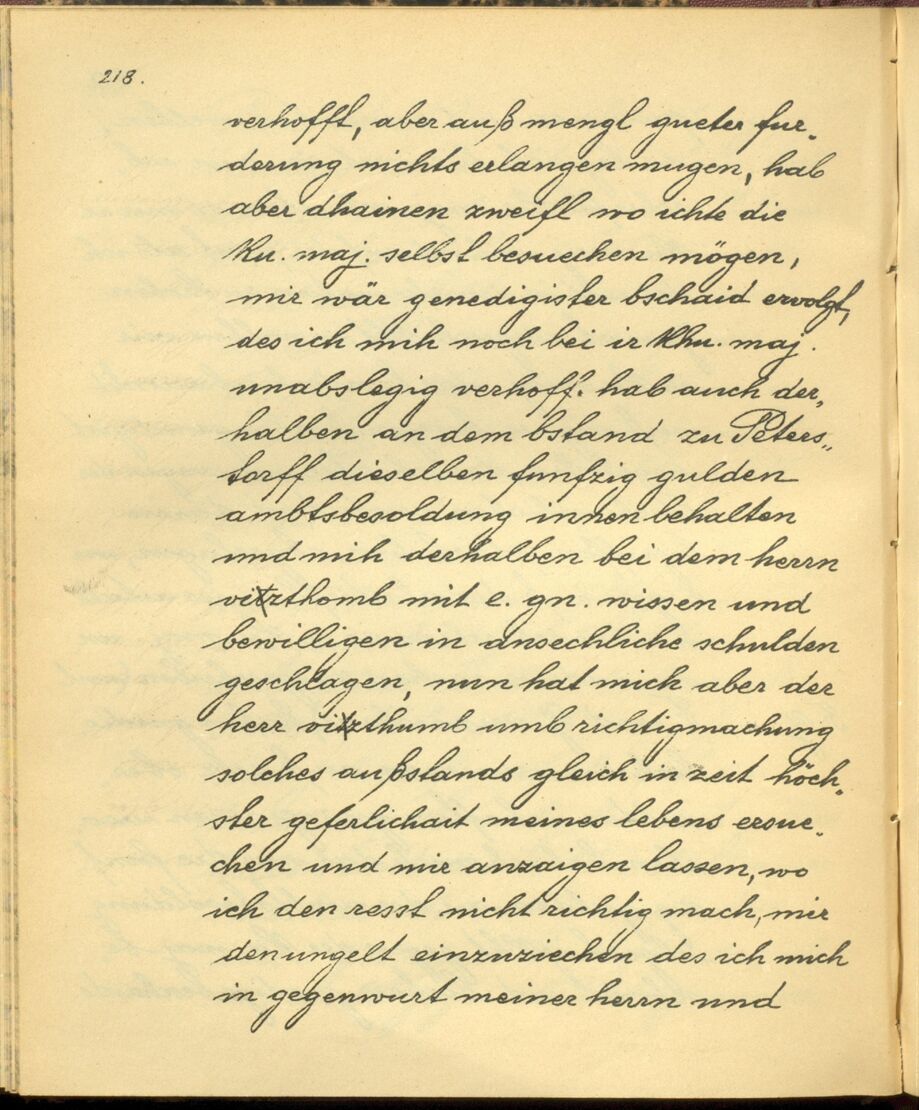 218.
verhofft, aber auß mengl gueter fur„
derung nichts erlangen mugen, hab
aber dhainen zweifl wo ichte die
Ku. maj. selbst besuechen mögen,
mir wär genedigister bschaid ervolgt,
des ich mih noch bei ir Khu. maj.
unabslegig verhoff. hab auch der„
halben an dem bstand zu Peters„
torff dieselben funfzig gulden
ambtsbesoldung innen behalten
und mih derhalben bei dem herrn
vitzthomb mit e. gn. wissen und
bewilligen in ansechliche schulden
geschlagen, nun hat mich aber der
herr vitzthumb umb richtigmachung
solches außstands gleich in zeit höch„
ster geferlichait meines lebens ersue„
chen und mir anzaigen lassen, wo
ich den resst nicht richtig mach, mir
den ungelt einzuziechen des ich mich
in gegenwurt meiner herrn und